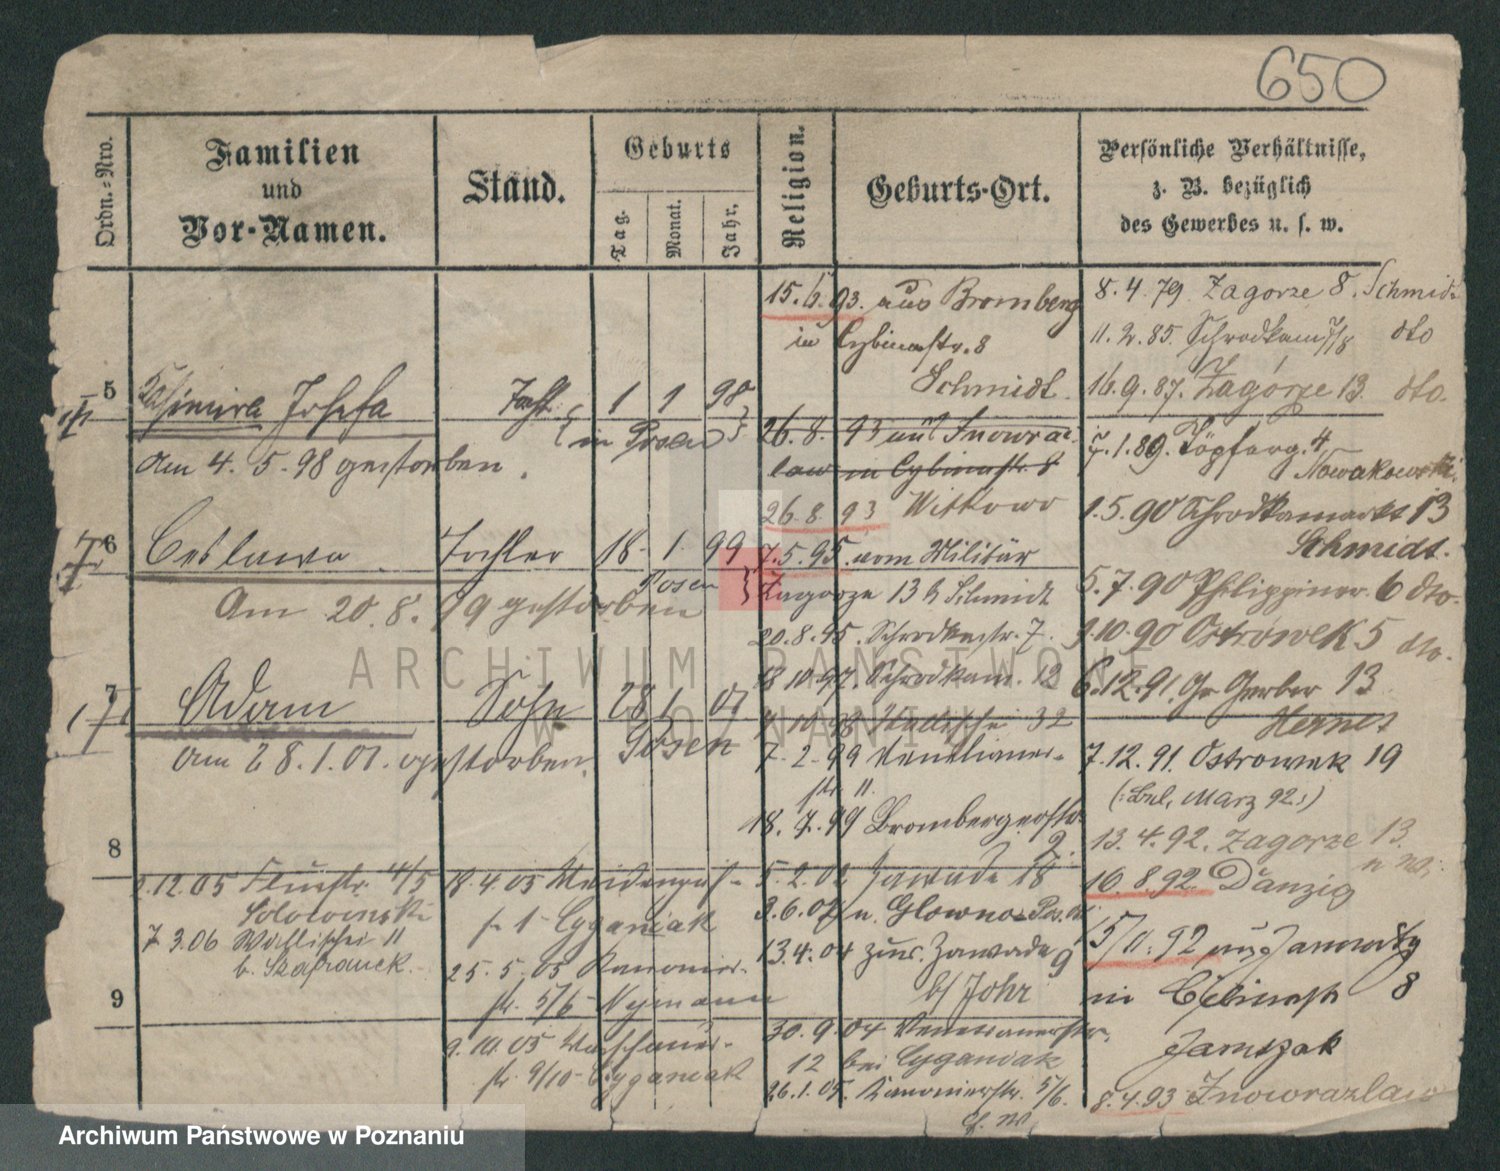 650
Ordn.=Nro.
Familien
und
Vor-Namen.
Stand.
Geburts
Tag.
Monat.
Jahr.
Religion.
Geburts-Ort.
Persönliche Verhältnisse,
z. B. bezüglich
des Gewerbes u. s. w.
5
Kasimira Josefa
1 1 98
in Posen
am 4. 5. 98 gestorben.
6
Ceslawa Tochter 18. 1. 99
Posen
Am 20. 8. 99 gestorben
7
Adam Sohn 28 1. 01
Posen
am 28. 1. 01. gestorben.
8
2.12.05 4/5
7 3.06 Wallischei 11
b. Szafranek.
9
18.4.05
Cyganiak
25. 5. 05 Kanonier-
str. 5/6 - Nejmann
9. 10. 05
str. 9/10 - Cyganiak
15. 6. 93. aus Bromberg
in Cybinastr. 8
Schmidt.
26. 8. 93 aus Inowraz-
law in Cybinastr. 8
26. 8. 93 Witkowo
7. 5. 95. vom Militär
Zagorze 13 b Schmidt
20. 8. 95. Schrodkastr. 7.
18 10. 97. Schrodkam. 12
10. 98 Wallischei 32
7. 2. 99 Venetianer-
str. 11.
18. 7. 99 Brombergerstr.
2.
5. 2. 02 Zawade 18
3. 6. 02 n. Glowno
13. 4. 04 zur. Zawade 9
b/ Johr
30. 9. 04 Venetianerstr.
12 bei Cyganiak
26. 1. 05. Kanonierstr. 5/6.
8. 4. 79. Zagorze 8. Schmidt
11. 2. 85. Schrodkam 7/8 dto
16. 9. 87. Zagórze 13. dto.
7. 1. 89. Töpferg. 4
Nowakowski.
1. 5. 90 Schrodkamarkt 13
Schmidt.
5. 7. 90 Philippiner. 6 dto.
10. 90 Ostrowek 5 dto.
6. 12. 91. Gr Gerber 13
7. 12. 91. Ostrowek 19
März 92:)
13. 4. 92. Zagorze 13.
16. 8. 92. Danzig
5/11. 92 aus Janowitz
in Cybinastr 8
8. 4. 93 Inowrazlaw
ARCHIWUM PAŃSTWOWE
W POZNANIU
Archiwum Państwowe w Poznaniu